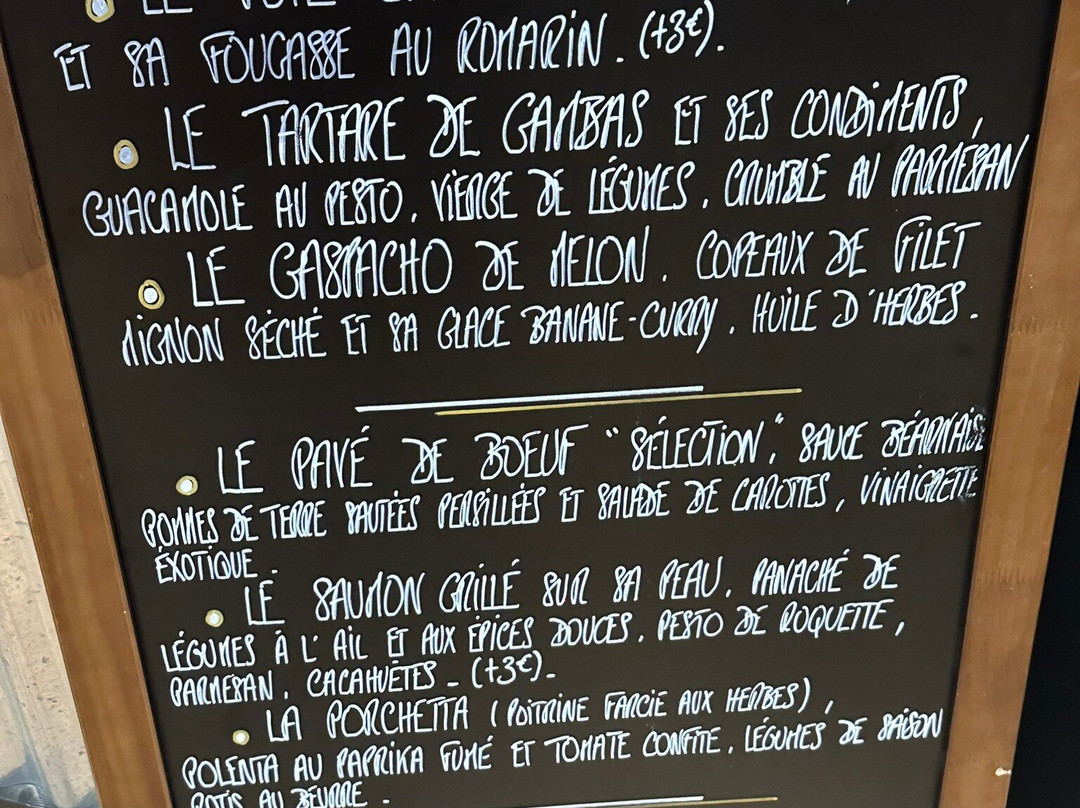 LE
ET SA FOUGASSE AU ROMARIN. (+3€).
LE TARTARE DE GAMBAS ET SES CONDIMENTS,
GUACAMOLE AU PESTO, VIERGE DE LÉGUMES, CRUMBLE AU PARMESAN
LE GASPACHO DE MELON, COPEAUX DE FILET
MIGNON SÉCHÉ ET SA GLACE BANANE-CURRY, HUILE D'HERBES.
LE PAVÉ DE BOEUF "SÉLECTION", SAUCE BÉARNAISE
POMMES DE TERRE SAUTÉES PERSILLÉES ET SALADE DE CAROTTES, VINAIGRETTE
EXOTIQUE.
LE SAUMON GRILLÉ SUR SA PEAU, PANACHÉ DE
LÉGUMES À L'AIL ET AUX ÉPICES DOUCES, PESTO DE ROQUETTE,
PARMESAN, CACAHUÈTES - (+3€).
LA PORCHETTA (POITRINE FARCIE AUX HERBES),
POLENTA AU PAPRIKA FUMÉ ET TOMATE CONFITE, LÉGUMES DE SAISON
ROTIS AU BEURRE.